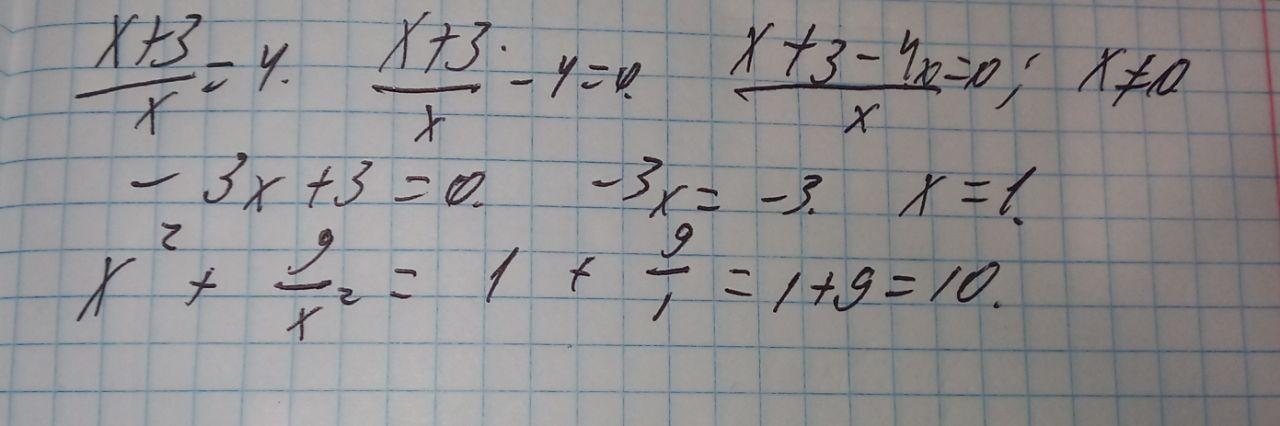 (x+3)/x = 4. (x+3)/x - 4 = 0. (x+3-4x)/x = 0; x ≠ 0
-3x + 3 = 0. -3x = -3. x = 1.
x² + 9/x² = 1 + 9/1 = 1+9 = 10.